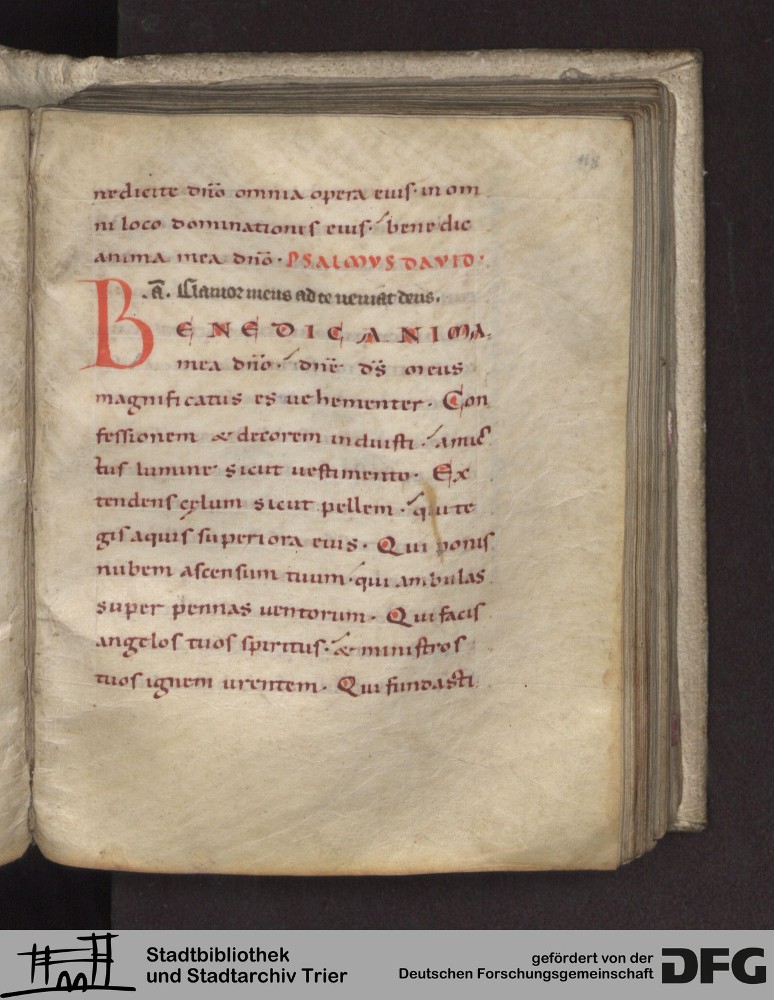 118
nedicite dño omnia opera eius· in om
ni loco dominationis eius·́ benedic
anima mea dño· PSALMVS DAVID·
.a͞. Clamor meus ad te ueniat deus.
BENEDIC ANIMA
mea dño·́ dñe d̄s meus
magnificatus es uehementer· Con
fessionem & decorem induisti·́ amic
tus lumine sicut uestimento· Ex
tendens cęlum sicut pellem·́ qui te
gis aquis superiora eius· Qui ponis
nubem ascensum tuum·́ qui ambulas
super pennas uentorum· Qui facis
angelos tuos spiritus·́ & ministros
tuos ignem urentem· Qui fundasti
Stadtbibliothek
und Stadtarchiv Trier
gefördert von der
Deutschen Forschungsgemeinschaft
DFG